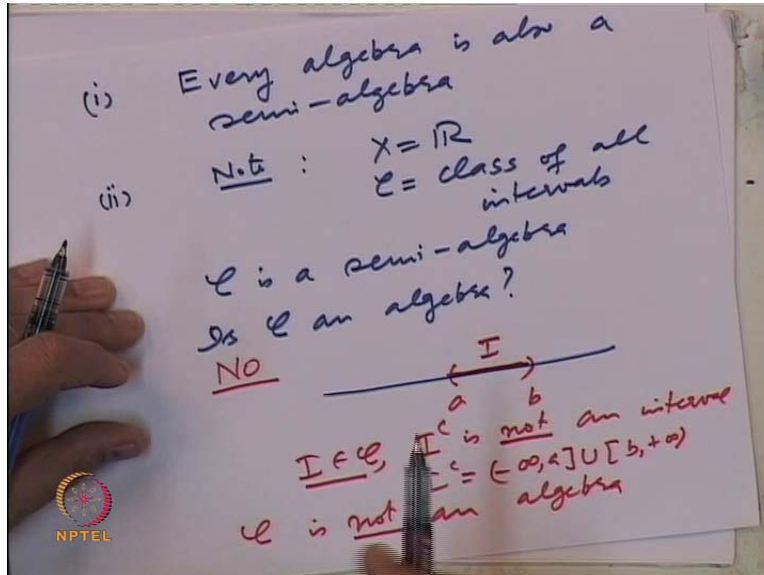 (i) Every algebra is also a
semi-algebra
(ii) Note : X = ℝ
𝒞 = class of all
intervals
𝒞 is a semi-algebra
Is 𝒞 an algebra?
NO
I
a b
I ∈ 𝒞, Iᶜ is not an interval
Iᶜ = (-∞, a] ∪ [b, +∞)
𝒞 is not an algebra
NPTEL